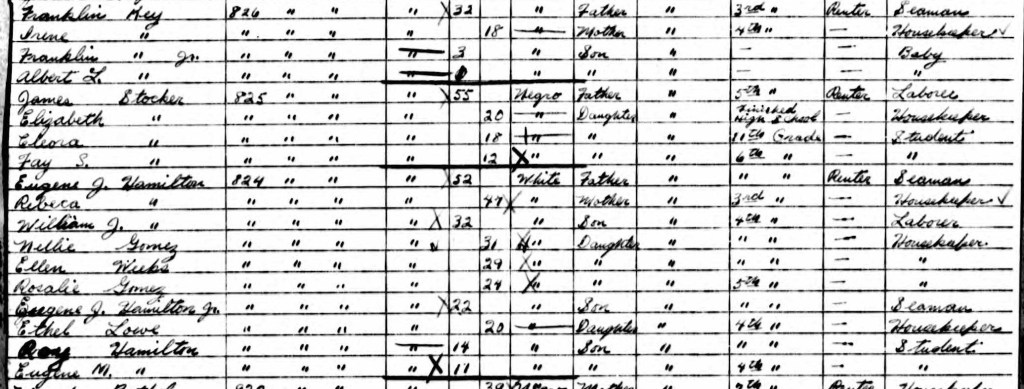 Franklin Key 826 " " " 32 " Father " 3rd " Renter Seaman
Irene " " " " " 18 " Mother " 4th " — Housekeeper
Franklin " Jr. " " " " 3 " Son " — — Baby
Albert L. " " " " " " " " — — "
James Stocker 825 " " " 55 Negro Father " 5th " Renter Laborer
Elizabeth " " " " " 20 " Daughter " Finished High School — Housekeeper
Eleora " " " " " 18 " " " 11th Grade — Student
Fay S. " " " " " 12 " " " 6th " — "
Eugene J. Hamilton 824 " " " 52 White Father " " " Renter Seaman
Rebeca " " " " " 47 " Mother " 3rd " — Housekeeper
William J. " " " " " 32 " Son " 4th " — Laborer
Nellie Gomez " " " " 31 " Daughter " " " — Housekeeper
Ellen Weeks " " " " 29 " " " " " — "
Rosalie Gomez " " " " 24 " " " 5th " — "
Eugene J. Hamilton Jr. " " " " 22 " Son " " " — Seaman
Ethel Lowe " " " " 20 " Daughter " 4th " — Housekeeper
Hamilton " " " " 14 " Son " " " — Student
Eugene M. " " " " " 11 " " " 4th " — "